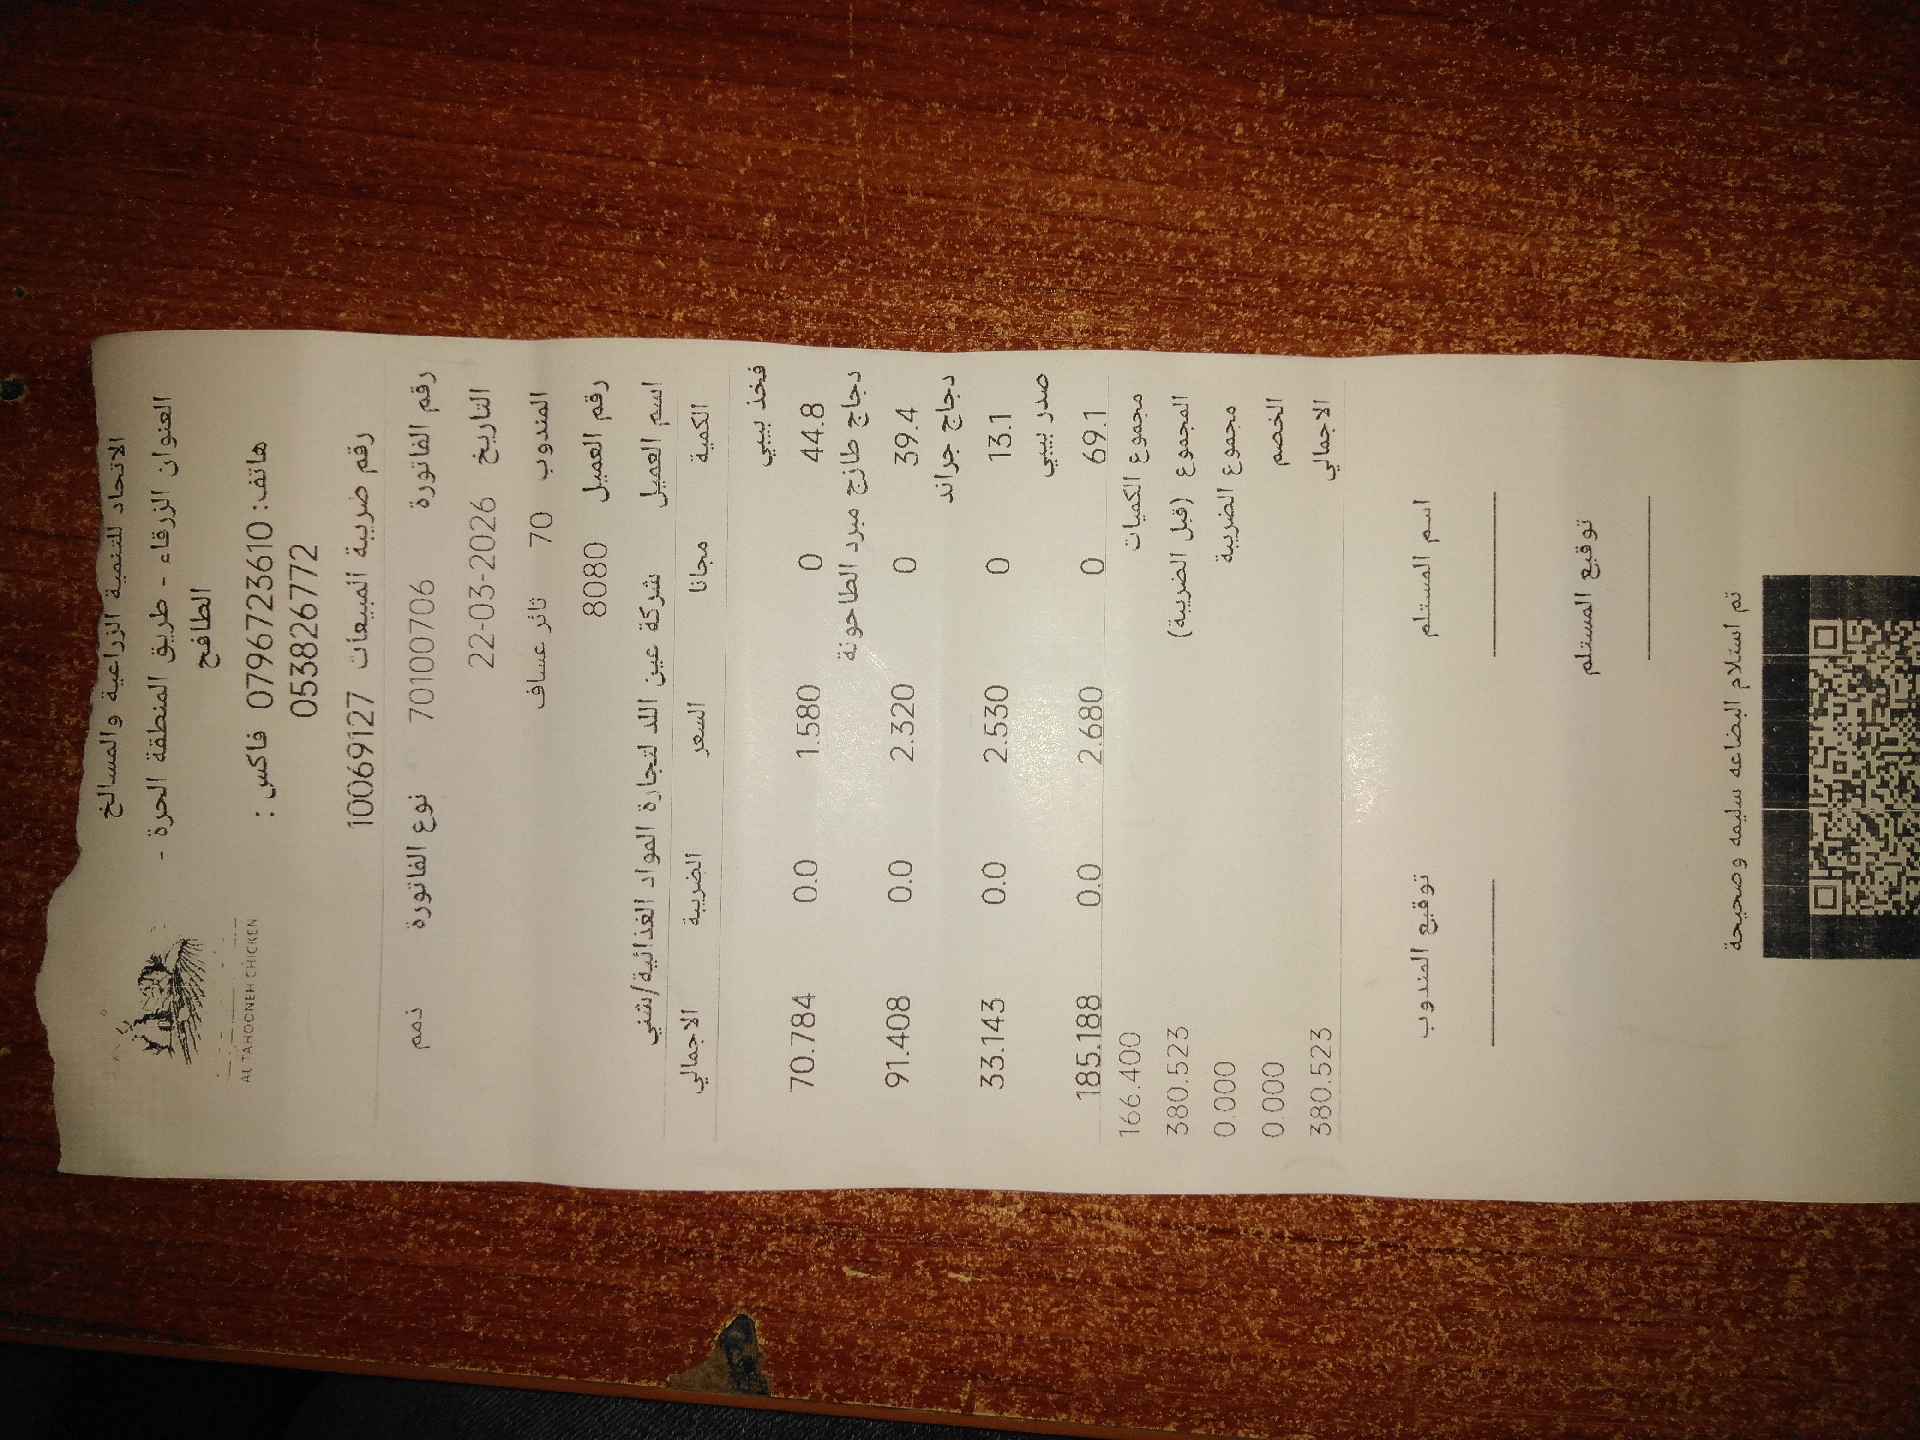 الاتحاد للتنمية الزراعية والمسالخ
العنوان الزرقاء - طريق المنطقة الحرة -
الطافح
هاتف: 0796723610 فاكس :
053826772
AL TAHOONEH CHICKEN
رقم ضريبة المبيعات 10069127
رقم الفاتورة 70100706 نوع الفاتورة ذمم
التاريخ 22-03-2026
المندوب 70 ثائر عساف
رقم العميل 8080
اسم العميل شركة عين اللد لتجارة المواد الغذائية/شني
الكمية مجانا السعر الضريبة الاجمالي
فخذ بيبي
44.8 0 1.580 0.0 70.784
دجاج طازج مبرد الطاحونة
39.4 0 2.320 0.0 91.408
دجاج جراند
13.1 0 2.530 0.0 33.143
صدر بيبي
69.1 0 2.680 0.0 185.188
مجموع الكميات 166.400
المجموع (قبل الضريبة) 380.523
مجموع الضريبة 0.000
الخصم 0.000
الاجمالي 380.523
اسم المستلم توقيع المندوب
توقيع المستلم
تم استلام البضاعه سليمه وصحيحة